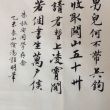 男兒何不帶吳鉤
收取關山五十州
請君暫上凌煙閣
若個書生萬戶侯